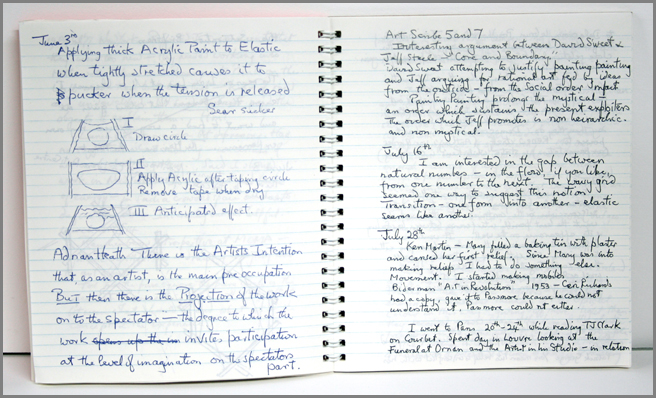 June 3rd
Applying thick Acrylic Paint to Elastic
when tightly stretched causes it to
pucker when the tension is released
Sear sucker
I
Draw circle
II
Apply Acrylic after taping circle
Remove tape when dry
III Anticipated effect.
Adrian Heath There is the Artists Intention
that, as an artist, is the main pre occupation
But then there is the Projection of the work
on to the spectator – the degree to which the
work opens up the un invites participation
at the level of imagination on the spectators
part.
Art Scribe 5 and 7
Interesting argument between David Sweet &
Jeff Steele - "Core and Boundary"
David Sweet attempting to justify "painting painting
and Jeff arguing for rational art fed by ideas
from the outside - from the Social order Input
Painting Painting prolongs the mystical -
an order which sustains the present exploiters
The order which Jeff promotes is non heirarchic.
and non mystical.
July 16th
I am interested in the gap between
natural numbers - in the flow if you like,
from one number to the next. The wavy grid
seemed one way to suggest this notion.
Transition - one form into another - elastic
seems like another.
July 28th
Ken Martin - Mary filled a baking tin with plaster
and carved her first relief. Since Mary was into
making reliefs "I had to do something else.
Movement." I started making mobiles
Biderman "Art in Revolution" 1953 - Ceri Richards
had a copy, gave it to Pasmore because he could not
understand it. Pasmore could not either.
I went to Paris 20th-24th while reading TJ Clark
on Courbet. Spent day in Louvre looking at the
Funeral at Ornan and the Artist in his Studio - in relation